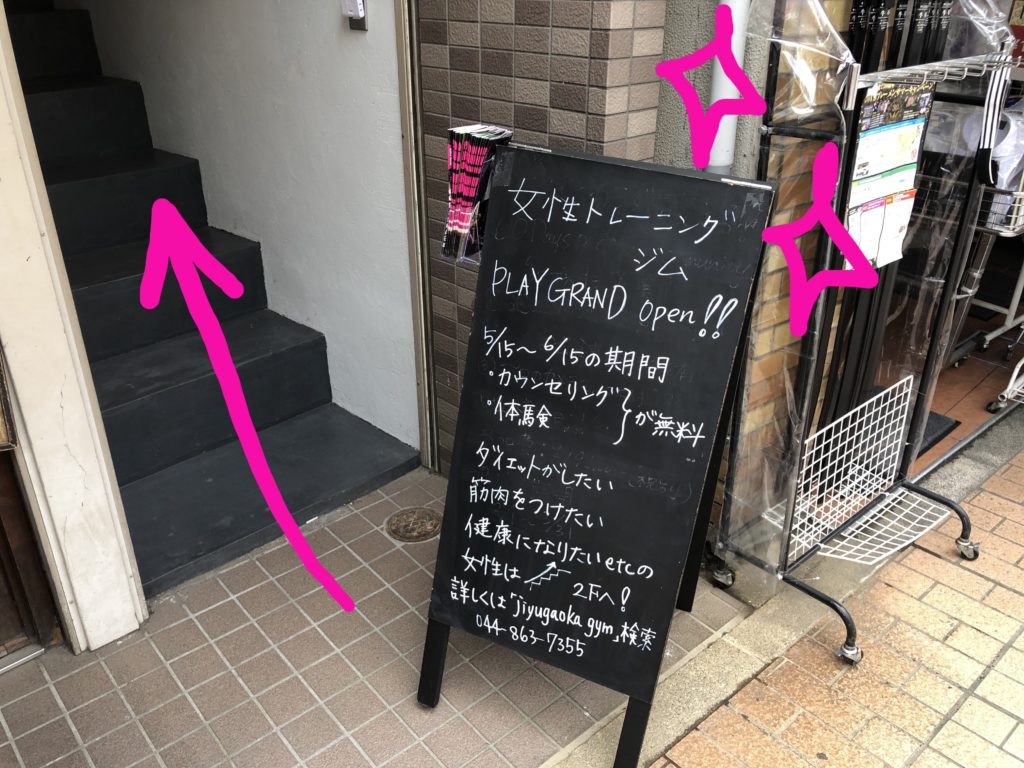 女性トレーニング
ジム
PLAY GRAND open!!
5/15〜6/15の期間
・カウンセリング
・体験
が無料
ダイエットがしたい
筋肉をつけたい
健康になりたいetcの
女性は 2Fへ!
詳しくは「jiyugaoka gym」検索
044-863-7355